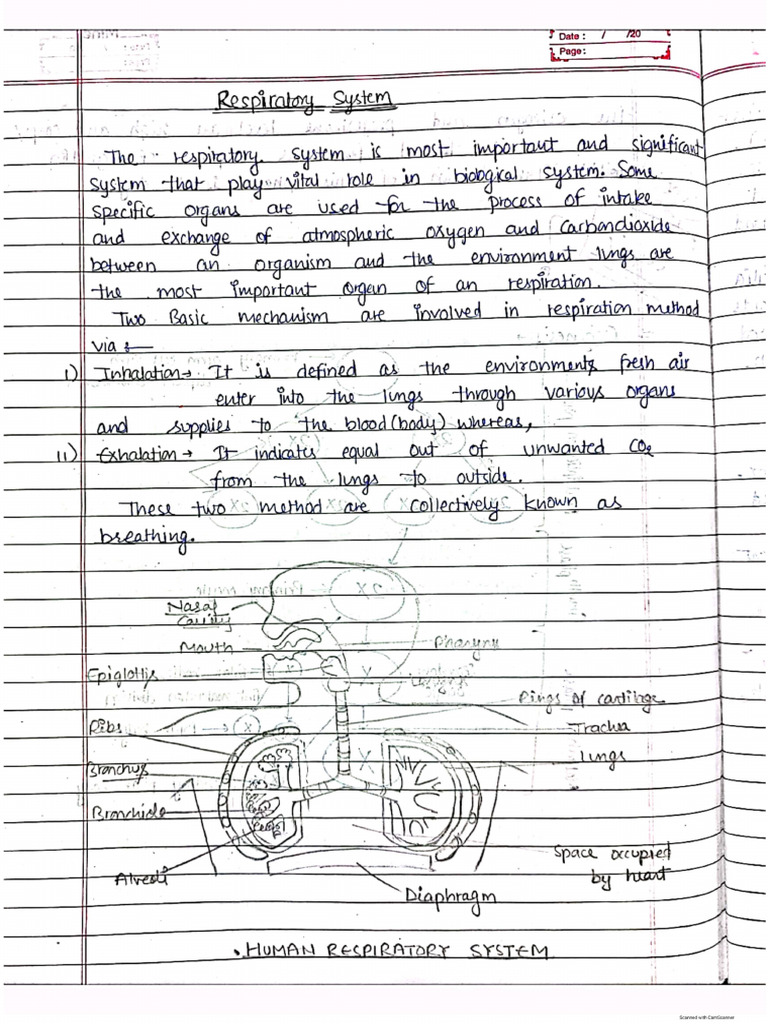 Date : / /20
Page:
Respiratory System
The respiratory system is most important and significant
system that play vital role in biological system. Some
specific organs are used for the process of intake
and exchange of atmospheric oxygen and carbondioxide
between an organism and the environment lungs are
the most important organ of an respiration.
Two Basic mechanism are involved in respiration method
via :-
i) Inhalation → It is defined as the environments fresh air
enter into the lungs through various organs
and supplies to the blood (body) whereas,
ii) Exhalation → It indicates equal out of unwanted CO₂
from the lungs to outside.
These two method are collectively known as
breathing.
Nasal
Cavity
Mouth
Pharynx
Epiglottis
Larynx
Rings of cartilage
Ribs
Trachea
lungs
Bronchus
Bronchiole
Alveoli
Space occupied
by heart
Diaphragm
• HUMAN RESPIRATORY SYSTEM
Scanned with CamScanner